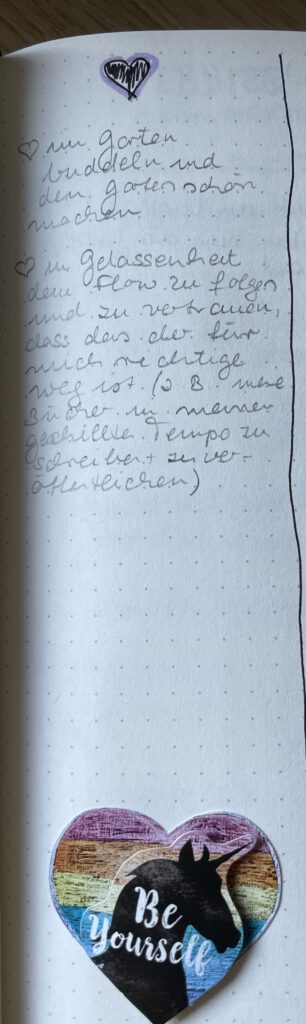 ♡ im Garten
buddeln und
den Garten schön
machen
♡ in Gelassenheit
dem Flow zu folgen
und zu vertrauen,
dass das der für
mich richtige
Weg ist (z B meine
Bücher in meinem
gechillten Tempo zu
schreiben + zu ver-
öffentlichen)
Be
Yourself